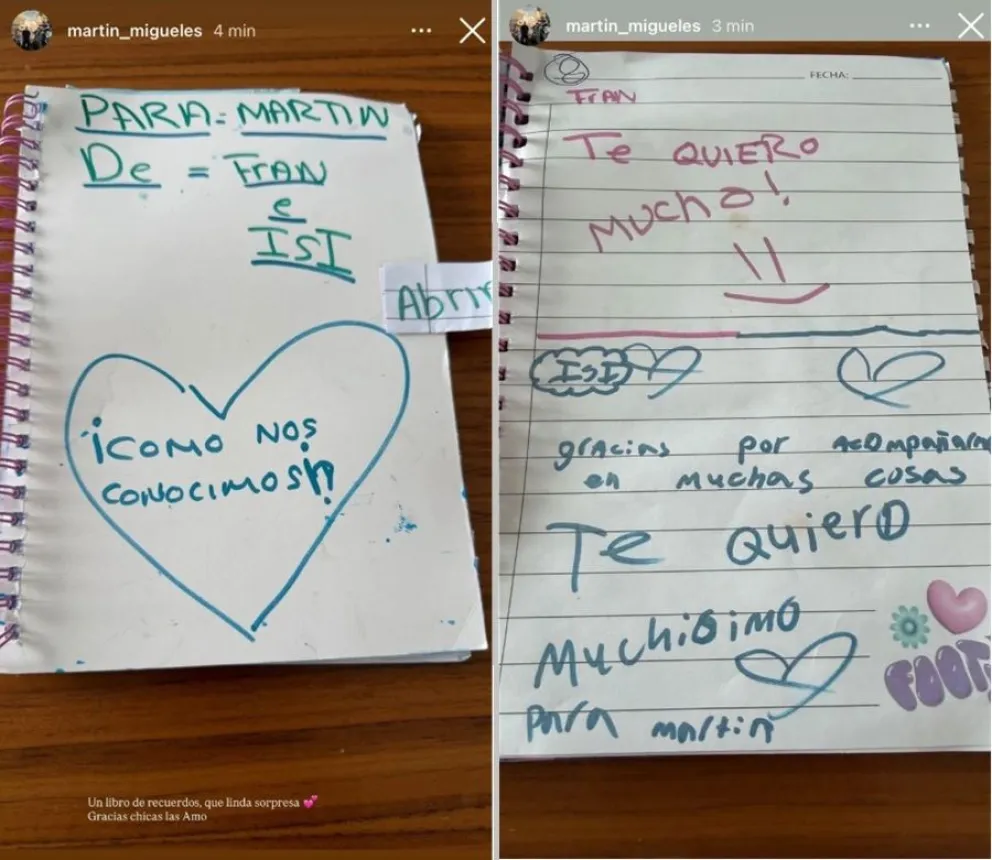 martin_migueles 4 min
PARA = MARTIN
De = FRAN
e
ISI
Abrir
¡COMO NOS
CONOCIMOS!!
Un libro de recuerdos, que linda sorpresa 💕
Gracias chicas las Amo
martin_migueles 3 min
FECHA:
FRAN
Te QUIERO
MUCHO!
ISI
gracias por acompañarm
en muchas cosas
Te QuierO
Muchisimo
para martin
FOOT